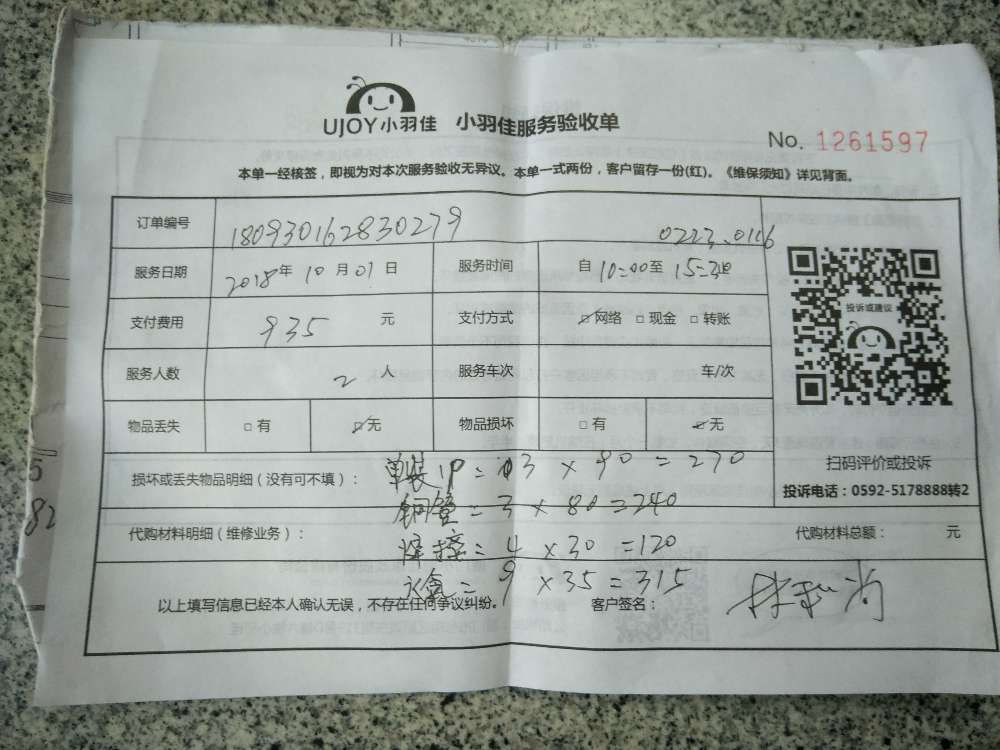 UJOY小羽佳 小羽佳服务验收单
No. 1261597
本单一经核签，即视为对本次服务验收无异议。本单一式两份，客户留存一份(红)。《维保须知》详见背面。
订单编号 180930162830279 0223、0106
服务日期 2018年10月01日 服务时间 自10:00至15:30
支付费用 935 元 支付方式 ☑网络 □现金 □转账
投诉或建议
服务人数 2 人 服务车次 车/次
物品丢失 □有 ☑无 物品损坏 □有 ☑无
扫码评价或投诉
投诉电话：0592-5178888转2
损坏或丢失物品明细（没有可不填）： 单装1P=3×90=270
铜管=3×80=240
代购材料明细（维修业务）： 代购材料总额： 元
焊接=4×30=120
=9×35=315
以上填写信息已经本人确认无误，不存在任何争议纠纷。 客户签名：
82